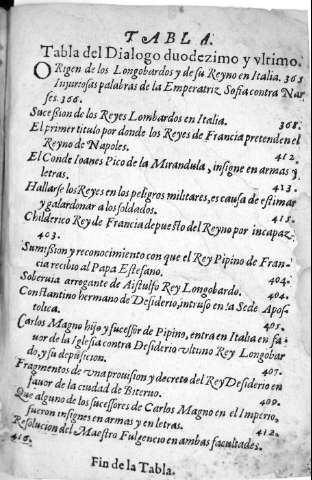 TABLA.
Tabla del Dialogo duodezimo y vltimo.
ORigen de los Longobardos y de su Reyno en Italia. 363
Iniuriosas palabras de la Emperatriz Sofia contra Nar
ses. 366.
Sucession de los Reyes Lombardos en Italia. 368.
El primer titulo por donde los Reyes de Francia pretenden el
Reyno de Napoles. 412.
El Conde Ioanes Pico de la Mirandula, insigne en armas y
letras. 413.
Hallarse los Reyes en los peligros militares, es causa de estimar
y galardonar a los soldados. 415.
Childerico Rey de Francia depuesto del Reyno por incapaz.
403.
Sumission y reconocimiento con que el Rey Pipino de Fran-
cia recibio al Papa Estefano. 404.
Soberuia arrogante de Aistulfo Rey Longobardo. 404.
Constantino hermano de Desiderio, intruso en la Sede Apos-
tolica. 405.
Carlos Magno hijo y sucessor de Pipino, entra en Italia en fa-
uor de la Iglesia contra Desiderio vltimo Rey Longobar
do, y su deposicion. 407.
Fragmentos de vna prouision y decreto del Rey Desiderio en
fauor de la ciudad de Biterno. 409.
Que alguno de los sucessores de Carlos Magno en el Imperio,
fueron insignes en armas y en letras. 412.
Resolucion del Maestro Fulgencio en ambas facultades.
416.
Fin de la Tabla.